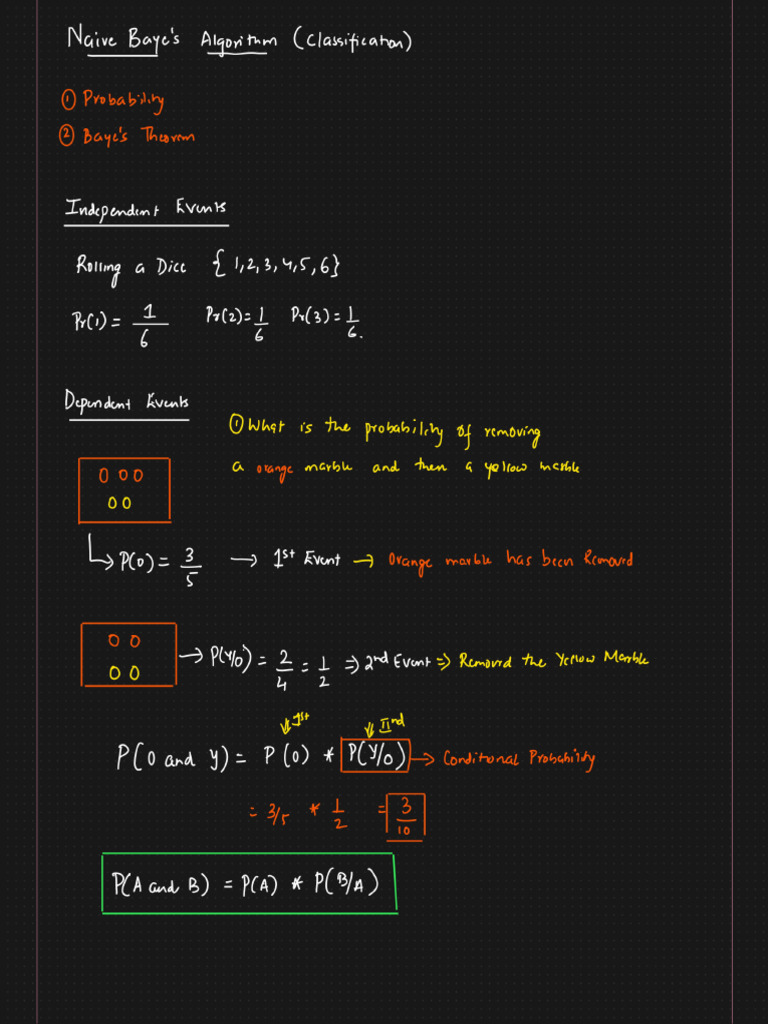 Naive Baye's Algorithm (Classification)
① Probability
② Baye's Theorem
Independent Events
Rolling a Dice {1,2,3,4,5,6}
Pr(1) = 1/6 Pr(2) = 1/6 Pr(3) = 1/6.
Dependent Events
① What is the probability of removing
a orange marble and then a yellow marble
O O O
O O
P(O) = 3/5 → 1st Event → Orange marble has been Removed
O O
O O
→ P(Y/O) = 2/4 = 1/2 ⇒ 2nd Event ⇒ Removed the Yellow Marble
⇓ Ist ⇓ IInd
P(O and Y) = P(O) * P(Y/O) → Conditional Probability
= 3/5 * 1/2 = 3/10
P(A and B) = P(A) * P(B/A)